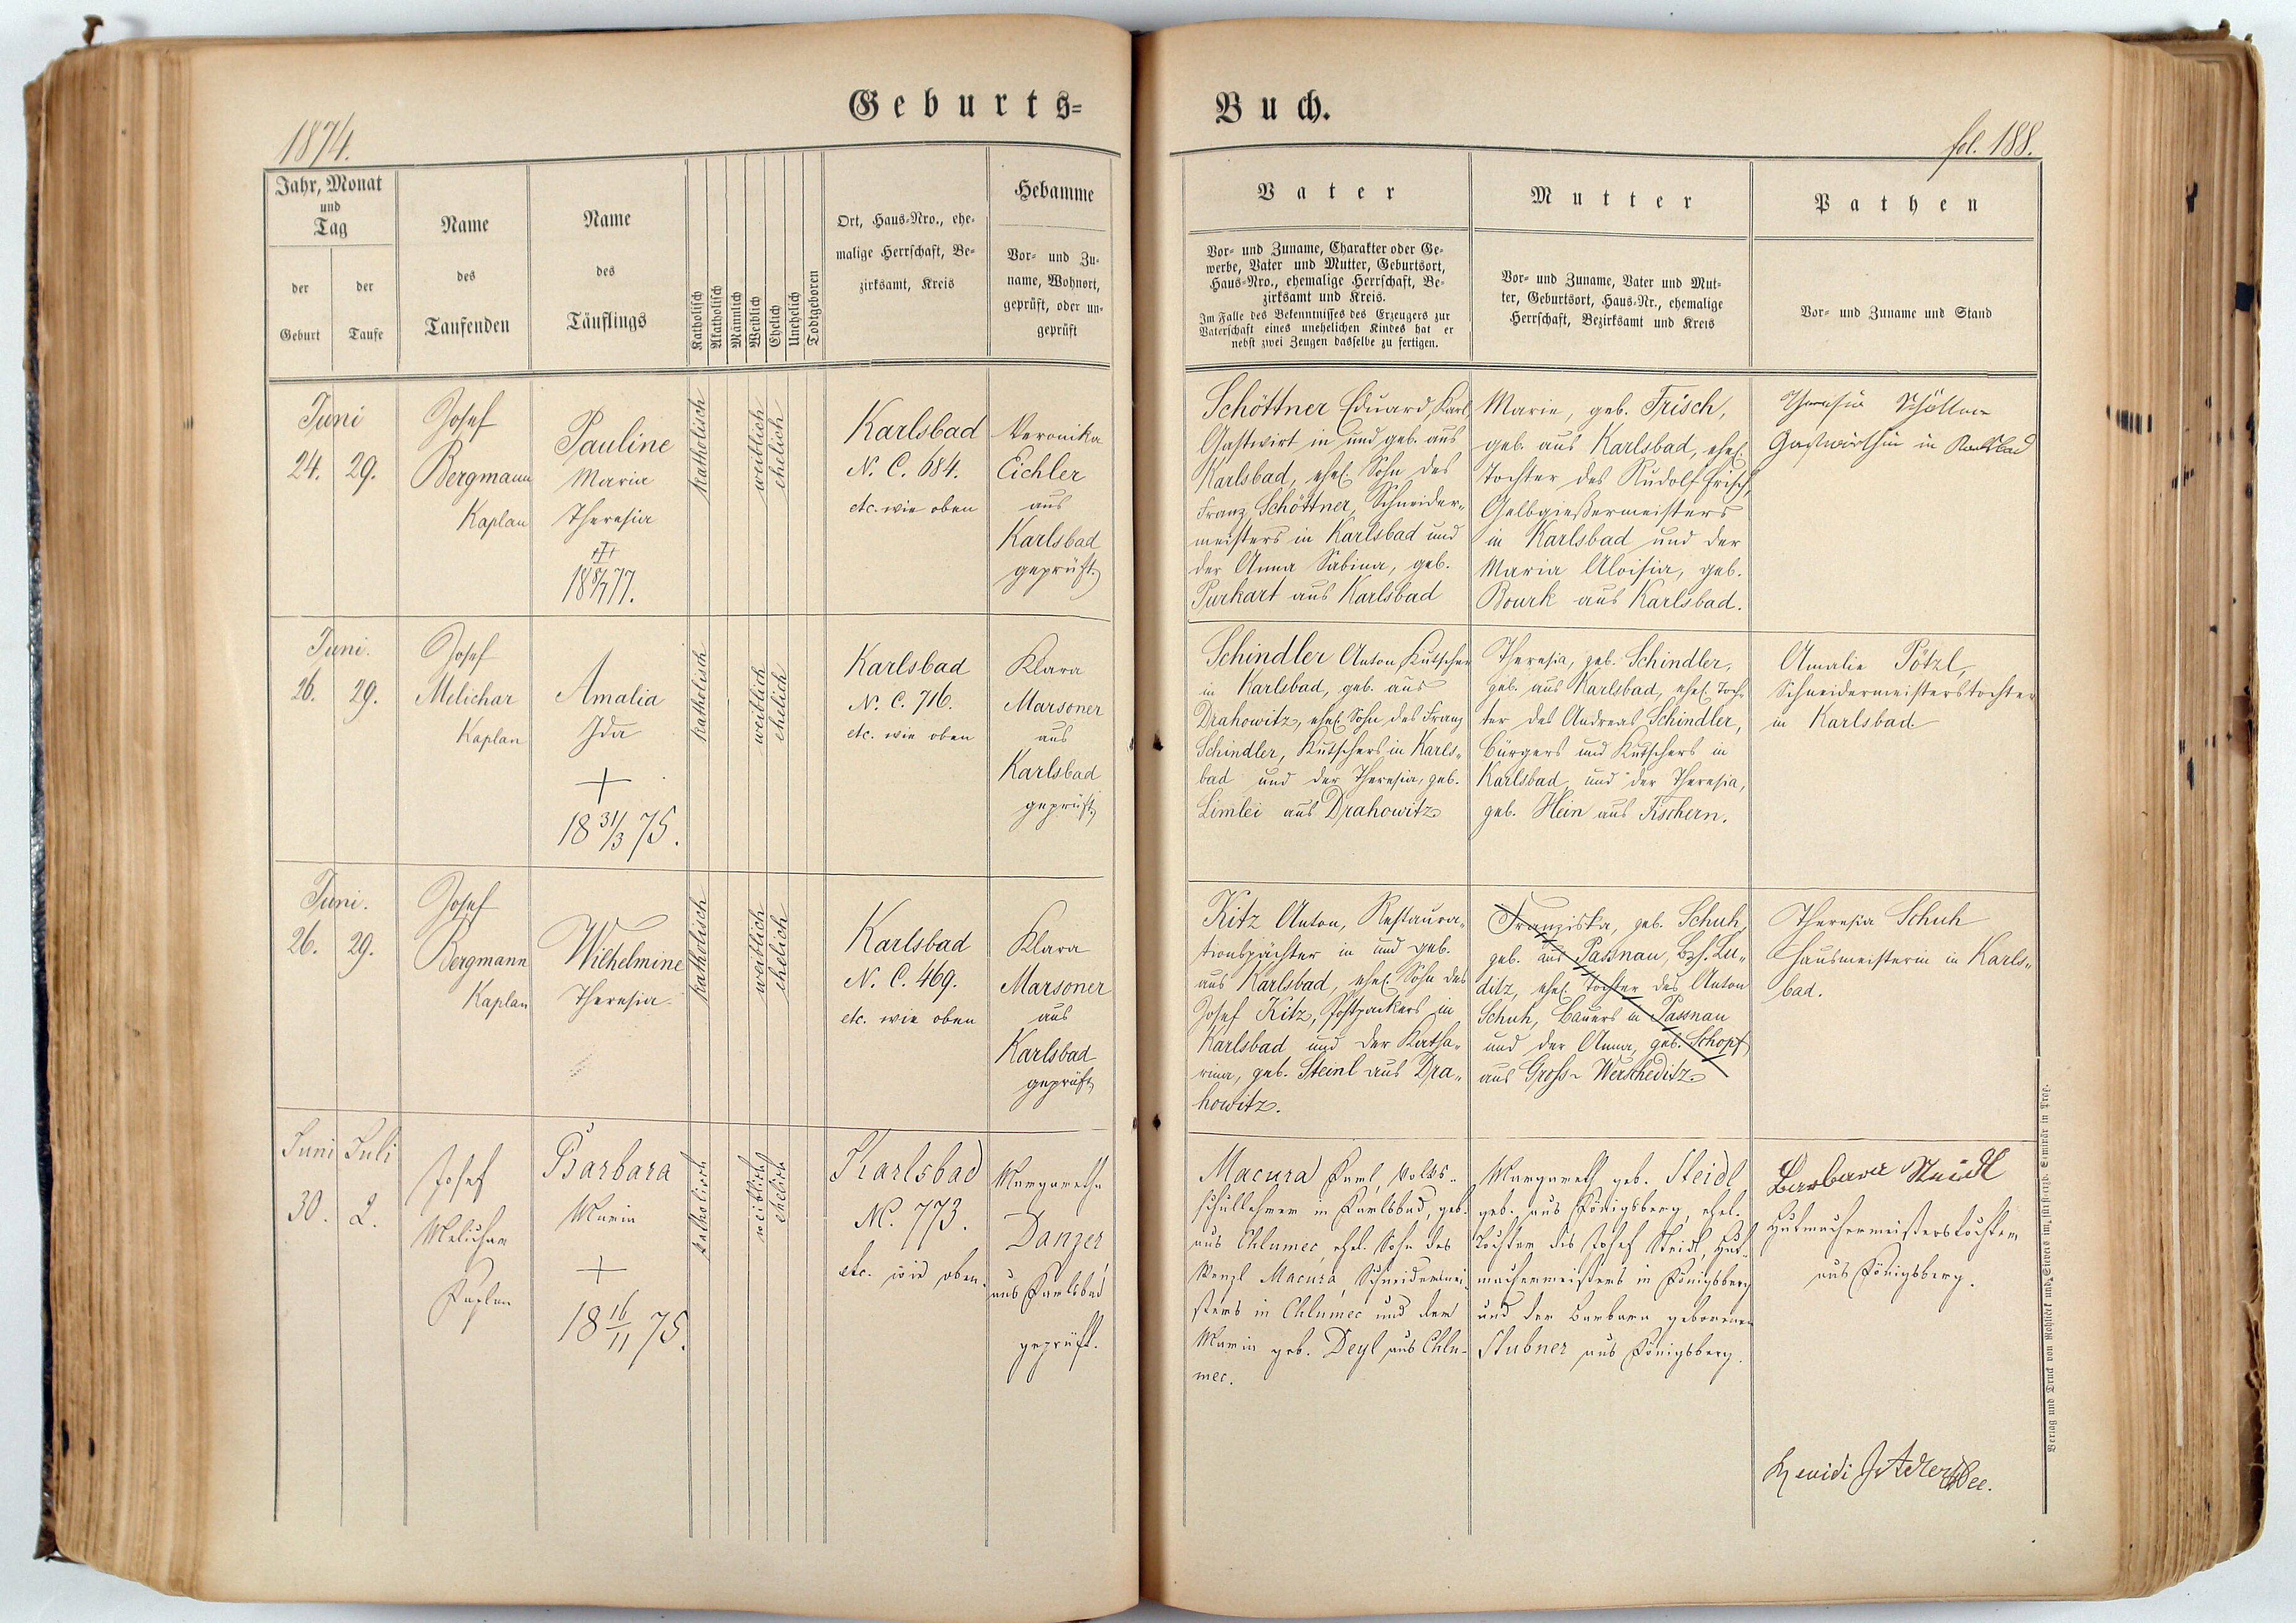 Geburts=
Buch.
1874.
fol. 188.
Jahr, Monat
und
Tag
der
Geburt
der
Taufe
Name
des
Taufenden
Name
des
Täuflings
Katholisch
Akatholisch
Männlich
Weiblich
Ehelich
Unehelich
Todtgeboren
Ort, Haus-Nro., ehe-
malige Herrschaft, Be-
zirksamt, Kreis
Hebamme
Vor- und Zu-
name, Wohnort,
geprüft, oder un-
geprüft
Vater
Vor- und Zuname, Charakter oder Ge-
werbe, Vater und Mutter, Geburtsort,
Haus-Nro., ehemalige Herrschaft, Be-
zirksamt und Kreis.
Im Falle des Bekenntnisses des Erzeugers zur
Vaterschaft eines unehelichen Kindes hat er
nebst zwei Zeugen dasselbe zu fertigen.
Mutter
Vor- und Zuname, Vater und Mut-
ter, Geburtsort, Haus-Nr., ehemalige
Herrschaft, Bezirksamt und Kreis
Pathen
Vor- und Zuname und Stand
Juni
24. 29.
Josef
Bergmann
Kaplan
Pauline
Maria
Theresia
18 8/7 77.
katholisch
weiblich
ehelich
Karlsbad
N. C. 684.
etc. wie oben
Veronika
Eichler
aus
Karlsbad
geprüft.
Schöttner Eduard Karl,
Gastwirt in und geb. aus
Karlsbad, ehel. Sohn des
Franz Schöttner, Schneider-
meisters in Karlsbad und
der Anna Sabina, geb.
Purkart aus Karlsbad
Marie, geb. Frisch,
geb. aus Karlsbad, ehel.
Tochter des Rudolf Frisch,
Gelbgießermeisters
in Karlsbad und der
Maria Aloisia, geb.
Bourk aus Karlsbad.
Theresia Schöttner
Gastwirthin in Karlsbad
Juni.
26. 29.
Josef
Melichar
Kaplan
Amalia
Ida
+
18 31/3 75.
katholisch
weiblich
ehelich
Karlsbad
N. C. 716.
etc. wie oben
Klara
Marsoner
aus
Karlsbad
geprüft.
Schindler Anton, Kutscher
in Karlsbad, geb. aus
Drahowitz, ehel. Sohn des Franz
Schindler, Kutschers in Karls-
bad und der Theresia, geb.
Limlei aus Drahowitz
Theresia, geb. Schindler,
geb. aus Karlsbad, ehel. Toch-
ter des Andreas Schindler,
Bürgers und Kutschers in
Karlsbad, und der Theresia,
geb. Hein aus Fischern.
Amalie Pötzl,
Schneidermeisterstochter
in Karlsbad
Juni.
26. 29.
Josef
Bergmann
Kaplan
Wilhelmine
Theresia.
katholisch
weiblich
ehelich
Karlsbad
N. C. 469.
etc. wie oben
Klara
Marsoner
aus
Karlsbad
geprüft.
Kitz Anton, Restaura-
tionspächter in und geb.
aus Karlsbad, ehel. Sohn des
Josef Kitz, Postpackers in
Karlsbad und der Katha-
rina, geb. Steinl aus Dra-
howitz.
Franziska, geb. Schuh,
geb. aus Passnau, Bzh. Lu-
ditz, ehel. Tochter des Anton
Schuh, Bauers in Passnau
und der Anna, geb. Schopf
aus Groß-Werscheditz.
Theresia Schuh
Hausmeisterin in Karls-
bad.
Juni Juli
30. 2.
Josef
Melichar
Kaplan
Barbara
Maria
+
18 16/11 75.
katholisch
weiblich
ehelich
Karlsbad
N. 773.
etc. wie oben.
Margaretha
Danzer
aus Karlsbad
geprüft.
Macura Karl, Volks-
schullehrer in Karlsbad, geb.
aus Chlumec, ehel. Sohn des
Wenzl Macura, Schneidermei-
sters in Chlumec und der
Maria geb. Deyl aus Chlu-
mec.
Margareth geb. Steidl
geb. aus Königsberg, ehel.
Tochter des Josef Steidl, Hut-
machermeisters in Königsberg
und der Barbara geborenen
Stubner aus Königsberg.
Barbara Steidl
Hutmachermeisterstochter
aus Königsberg.
vidi
Verlag und Druck von Rohlicek und Sievers im fürst-erzb. Seminär in Prag.